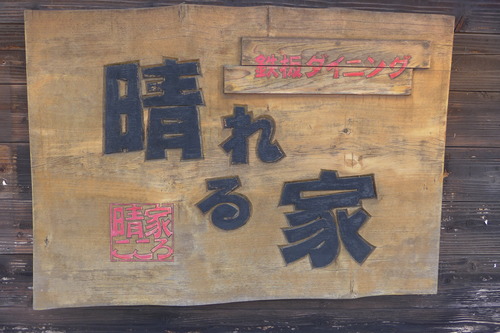 鉄板ダイニング
晴れる家
晴家
こころ